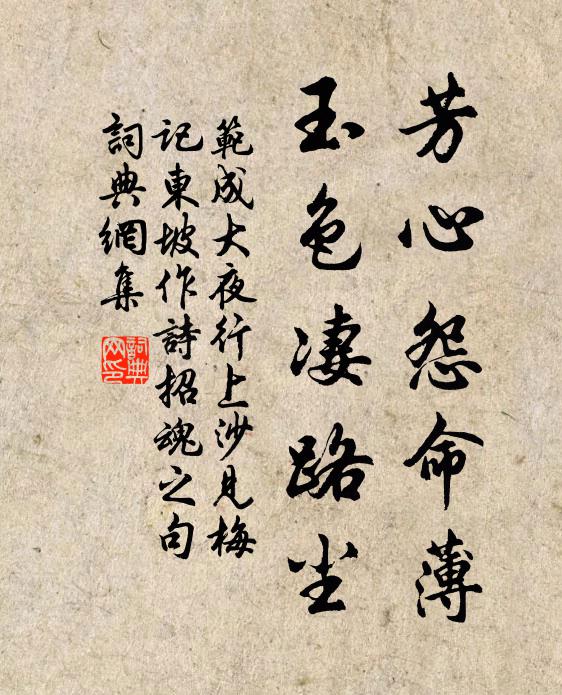 芳心怨命薄
玉色凄路尘
範成大夜行上沙見梅
記東坡作詩招魂之句
詞典網集
詞典网印